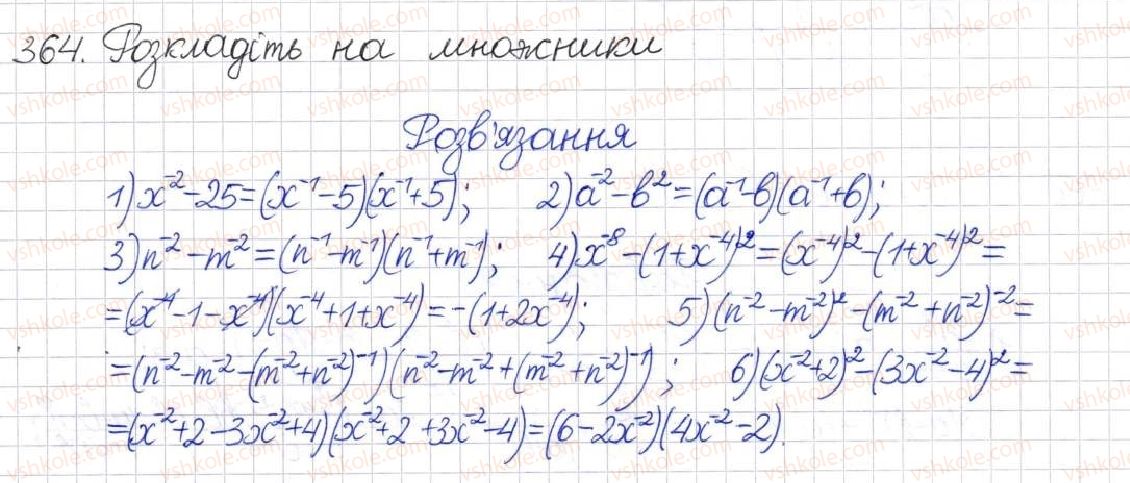 364. Розкладіть на множники
Розв'язання
1) x⁻² - 25 = (x⁻¹ - 5)(x⁻¹ + 5); 2) a⁻² - b² = (a⁻¹ - b)(a⁻¹ + b);
3) n⁻² - m⁻² = (n⁻¹ - m⁻¹)(n⁻¹ + m⁻¹); 4) x⁻⁸ - (1 + x⁻⁴)² = (x⁻⁴)² - (1 + x⁻⁴)² =
= (x⁻⁴ - 1 - x⁻⁴)(x⁻⁴ + 1 + x⁻⁴) = -(1 + 2x⁻⁴); 5) (n⁻² - m⁻²)² - (m⁻² + n⁻²)⁻² =
= (n⁻² - m⁻² - (m⁻² + n⁻²)⁻¹)(n⁻² - m⁻² + (m⁻² + n⁻²)⁻¹); 6) (x⁻² + 2)² - (3x⁻² - 4)² =
= (x⁻² + 2 - 3x⁻² + 4)(x⁻² + 2 + 3x⁻² - 4) = (6 - 2x⁻²)(4x⁻² - 2).